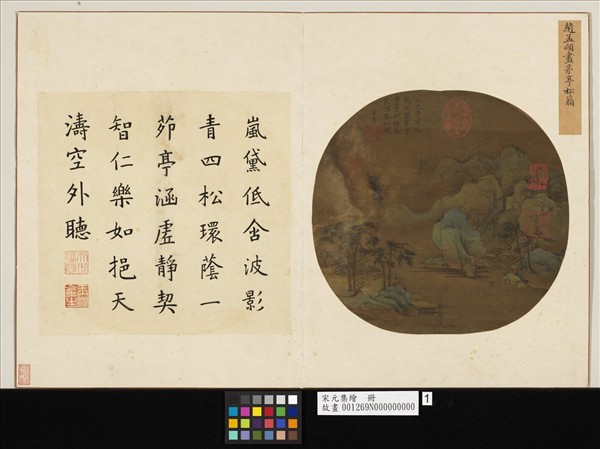 趙孟頫畫茅亭松籟
嵐黛低含波影
青四松環蔭一
茆亭涵虛靜契
智仁樂如挹天
濤空外聽
宋元集繪 冊
故畫 001269N000000000
1